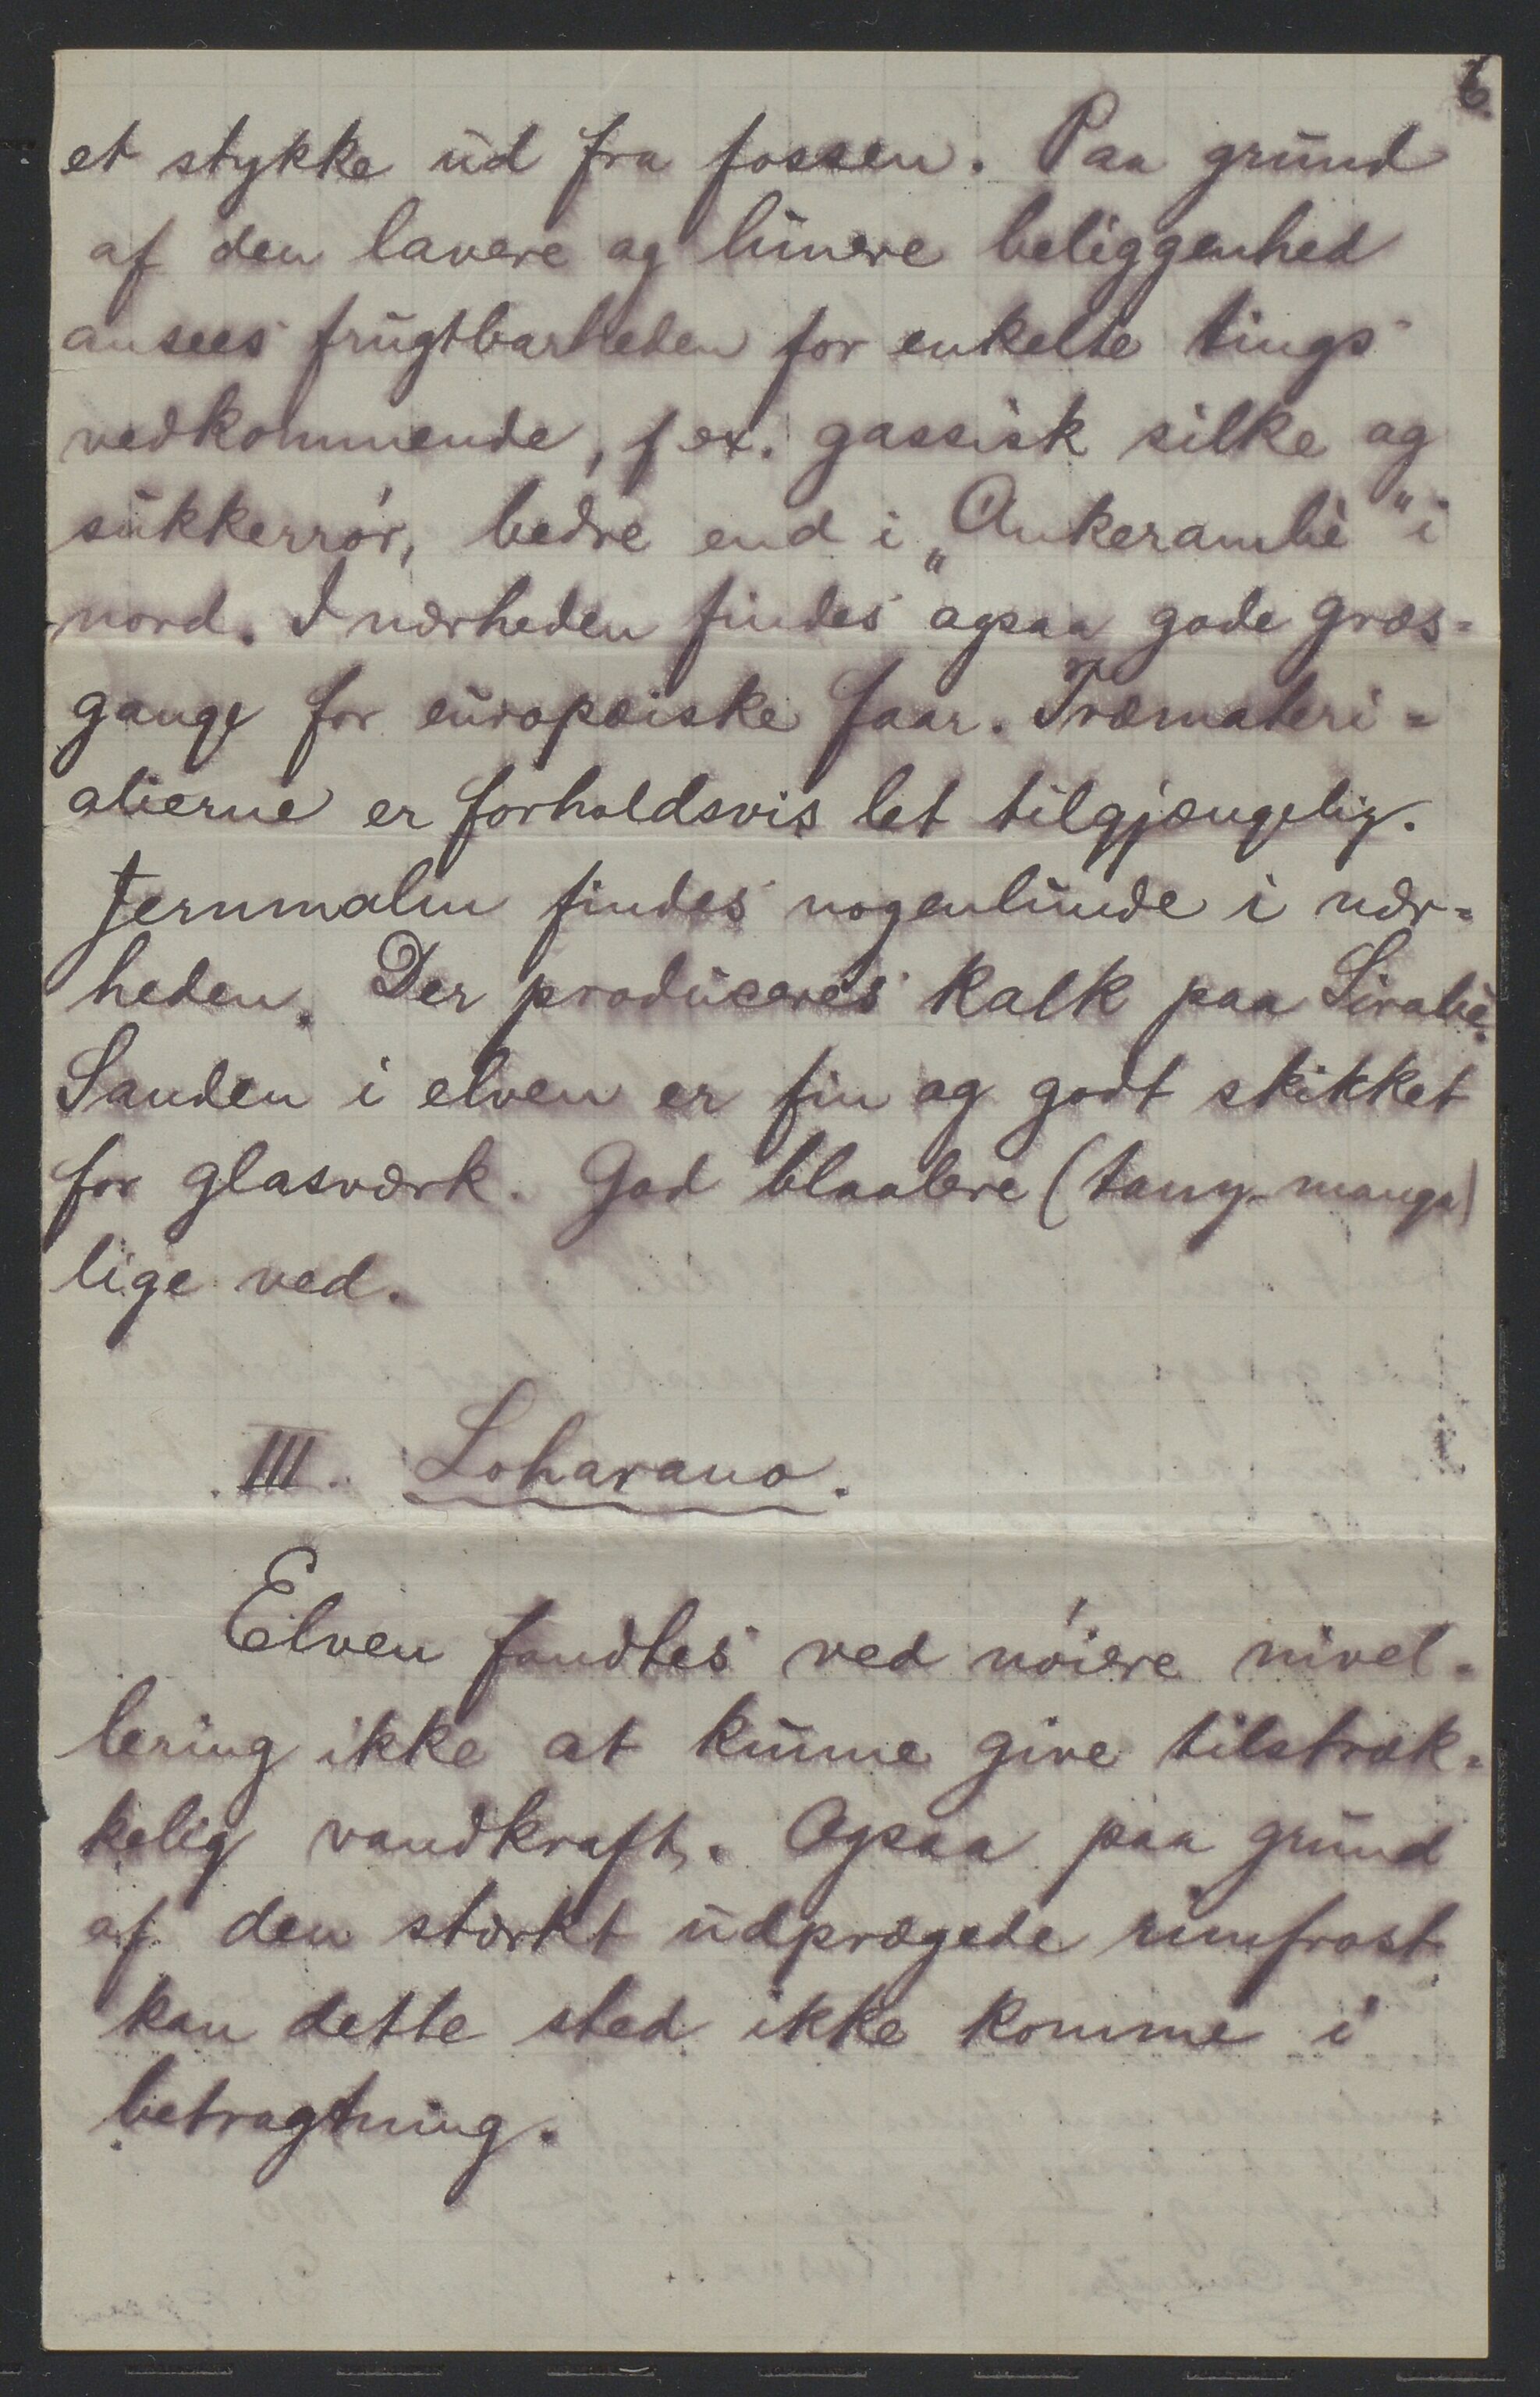 6.
et stykke ud fra fossen. Paa grund
af den lavere og lunere beliggenhed
ansees frugtbarheden for enkelte tings
vedkommende, f ex. gassisk silke og
sukkerrør, bedre end i „Ankerambè" i
nord. I nærheden findes ogsaa gode græs-
gange for europæiske faar. Træmateri-
alierne er forholdsvis let tilgjængelig.
Jernmalm findes nogenlunde i nær-
heden. Der produceres kalk paa Sirabè.
Sanden i elven er fin og godt skikket
for glasværk. God blaalere (tany-manga)
lige ved.
III. Loharano.
Elven fandtes ved nøiere nivel-
lering ikke at kunne give tilstræk-
kelig vandkraft. Ogsaa paa grund
af den stærkt udprægede rimfrost
kan dette sted ikke komme i
betragtning.